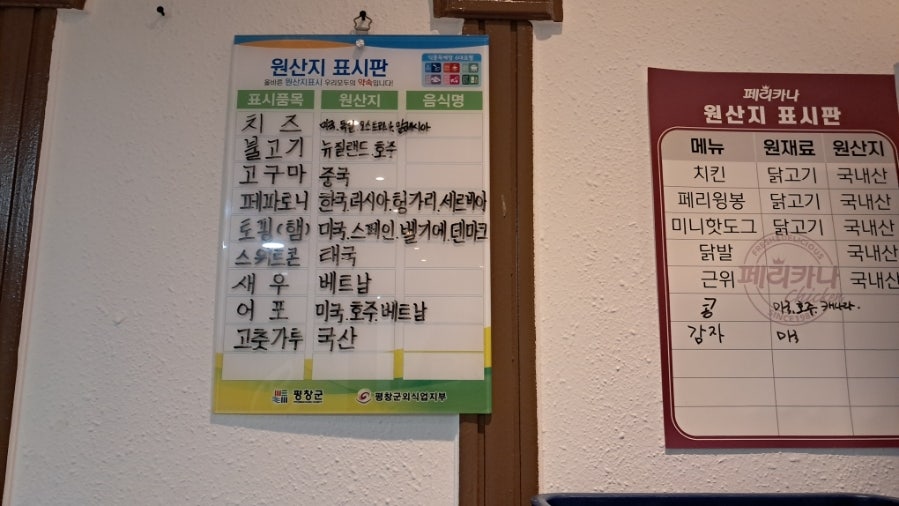 원산지 표시판
올바른 원산지표시 우리모두의 약속입니다!
표시품목 원산지 음식명
치즈 미국. 독일. 오스트리아
불고기 뉴질랜드 호주
고구마 중국
페파로니 한국.러시아.헝가리.세르비아
토핑(햄) 미국.스페인.벨기에.덴마크
스위트콘 태국
새우 베트남
어포 미국.호주.베트남
고춧가루 국산
평창군 평창군외식업지부
페리카나
원산지 표시판
메뉴 원재료 원산지
치킨 닭고기 국내산
페리윙봉 닭고기 국내산
미니핫도그 닭고기 국내산
닭발 국내산
근위 국내산
콩 미국. 호주. 캐나다.
감자 미국
FRESH&DELICIOUS
페리카나
Chicken
SINCE1982